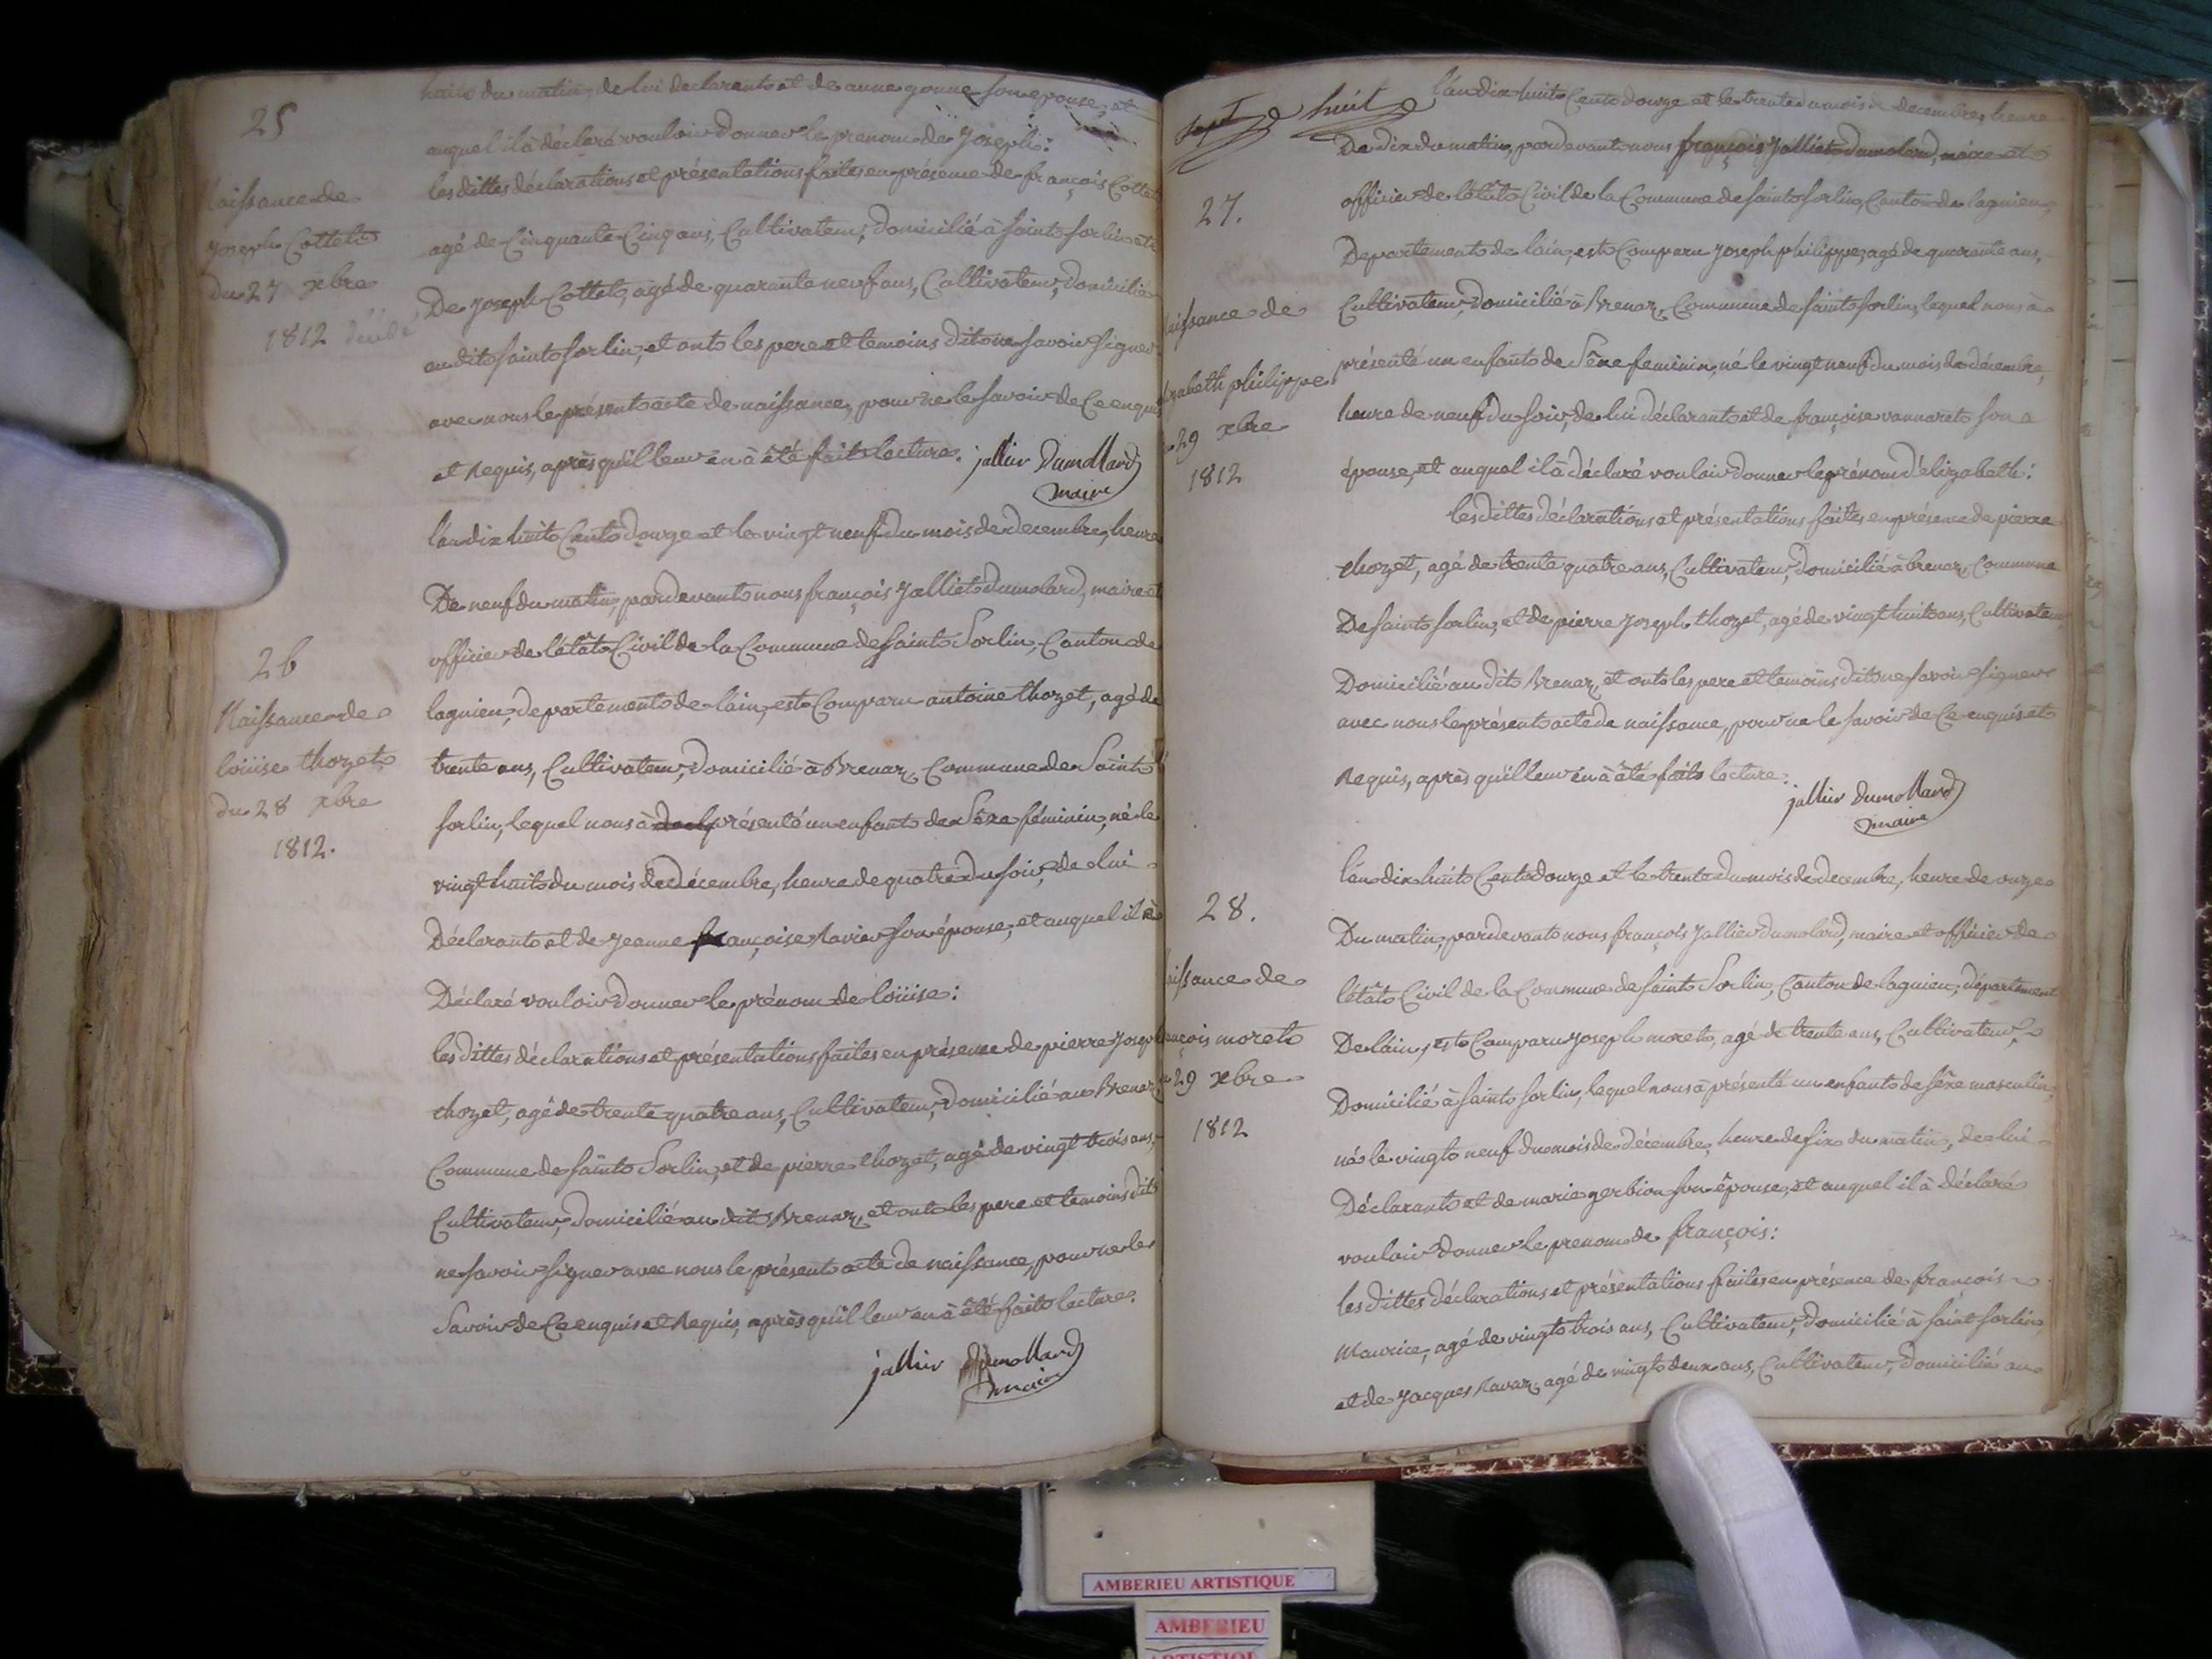 25
naissance de
joseph Cottet
du 27 xbre
1812
huit du matin, de lui declarant et de anne gonne son epouse, et
auquel il à déclaré vouloir donner le prenom de Joseph:
les dittes déclarations et présentations faites en présence de françois Cottet
agé de Cinquante Cinq ans, Cultivateur, domicilié à saint sorlin et
De joseph Cottet, agé de quarante neuf ans, Cultivateur, domicilié
au dit saint sorlin, et ont les pere et temoins dit ne savoir signer
avec nous le présent acte de naissance, pour ne le savoir de Ce enquis
et Requis, après qu'il leur en à été fait lecture.
jallier Dumollard
maire
26
Naissance de
loüise thozet
du 28 xbre
1812.
l'an dix huit Cent douze et le vingt neuf du mois de decembre, heure
De neuf du matin, pardevant nous françois Jallier dumolard, maire et
officier de l'étât Civil de la Commune de saint Sorlin, Canton de
lagnieu, departement de l'ain, est Comparu antoine thozet, agé de
trente ans, Cultivateur, domicilié à Brenaz, Commune de Saint
sorlin, lequel nous à decl présenté un enfant de Sêxe féminin, né le
vingt huit du mois de décembre, heure de quatre du soir, de lui
Déclarant et de jeanne françoise Ravier son épouse, et auquel il à
Déclaré vouloir donner le prénom de loüise:
les dittes déclarations et présentations faites en présence de pierre Joseph
thozet, agé de trente quatre ans, Cultivateur, domicilié au Brenaz,
Commune de saint Sorlin, et de pierre thozet, agé de vingt trois ans,
Cultivateur, domicilié au dit Brenaz, et ont les pere et temoins dit
ne savoir signer avec nous le présent acte de naissance, pour ne le
Savoir de Ce enquis et Requis, après qu'il leur en à été fait lecture.
jallier Dumollard
maire
sept huit
27.
issance de
zabeth philippe
29 xbre
1812
l'an dix huit Cent douze et le trente du mois de decembre, heure
De dix du matin, pardevant nous françois Jallier dumolard, maire et
officier de l'étât Civil de la Commune de saint sorlin, Canton de lagnieu,
Departement de l'ain, est Comparu joseph philippe, agé de quarante ans,
Cultivateur, domicilié à Brenaz, Commune de saint sorlin, lequel nous à
présenté un enfant de Sêxe feminin, né le vingt neuf du mois de décembre,
heure de neuf du soir, de lui déclarant et de françoise vannaret son
épouse, et auquel il à déclaré vouloir donner le prénom d'élizabeth:
les dittes déclarations et présentations faites en présence de pierre
thozet, agé de trente quatre ans, Cultivateur, domicilié à brenaz, Commune
De saint sorlin, et de pierre joseph thozet, agé de vingt huit ans, Cultivateur
Domicilié au dit Brenaz, et ont les pere et temoins dit ne savoir signer
avec nous le présent acte de naissance, pour ne le savoir de Ce enquis et
Requis, après qu'il leur en à été fait lecture.
jallier dumollard
maire
28.
issance de
ançois moret
29 xbre
1812
l'an dix huit Cent douze et le trente du mois de decembre, heure de onze
Du matin, pardevant nous françois Jallier dumolard, maire et officier de
l'étât Civil de la Commune de saint Sorlin, Canton de lagnieu, département
De l'ain, est Comparu joseph moret, agé de trente ans, Cultivateur,
Domicilié à saint sorlin, lequel nous à présenté un enfant de sêxe masculin,
né le vingt neuf du mois de décembre, heure de six du matin, de lui
Déclarant et de marie gerbion son épouse, et auquel il à déclaré
vouloir donner le prenom de françois:
les dittes déclarations et présentations faites en présence de françois
Maurice, agé de vingt trois ans, Cultivateur, domicilié à saint sorlin,
et de jacques Ravaz, agé de vingt deux ans, Cultivateur, domicilié au
AMBERIEU ARTISTIQUE
AMBERIEU
ARTISTIQUE